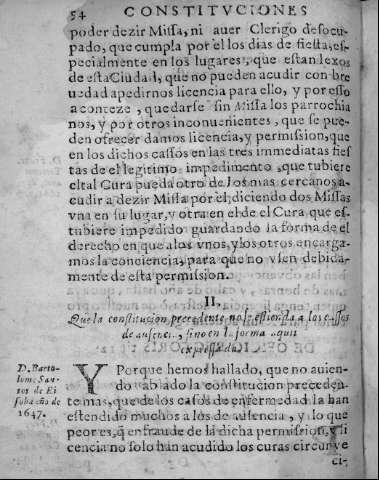 54 CONSTITVCIONES
poder dezir Missa, ni auer Clerigo desocu-
pado, que cumpla por el los dias de fiesta, es-
pecialmente en los lugares, que estan lexos
de esta Ciudad, que no pueden acudir con bre
uedad a pedirnos licencia para ello, y por esso
aconteze, quedarse sin Missa los parrochia
nos, y por otros inconuenientes, que se pue-
den ofrecer damos licencia, y permission, que
en los dichos cassos en las tres immediatas fies
tas de el legitimo impedimento, que tubiere
el tal Cura pueda otro de los mas cercanos a-
cudir a dezir Missa por el, diciendo dos Missas
vna en su lugar, y otra en el de el Cura que es-
tubiere impedido guardando la forma de el
derecho en que a los vnos, y los otros encarga-
mos la conciencia, para que no vsen debida-
mente de esta permission.
II.
Que la constitucion precedente no se estienda a los casos
de ausencia, sino en la forma aqui
expressada.
D. Barto-
lome San-
tos de Ri
soba año de
1647.
Y Porque hemos hallado, que no auien-
do hablado la constitucion preceden-
te mas, que de los casos de enfermedad la han
estendido muchos a los de ausencia, y lo que
peor es, q̃ en fraude de la dicha permission, y li
cencia no solo han acudido los curas circunve
ci-